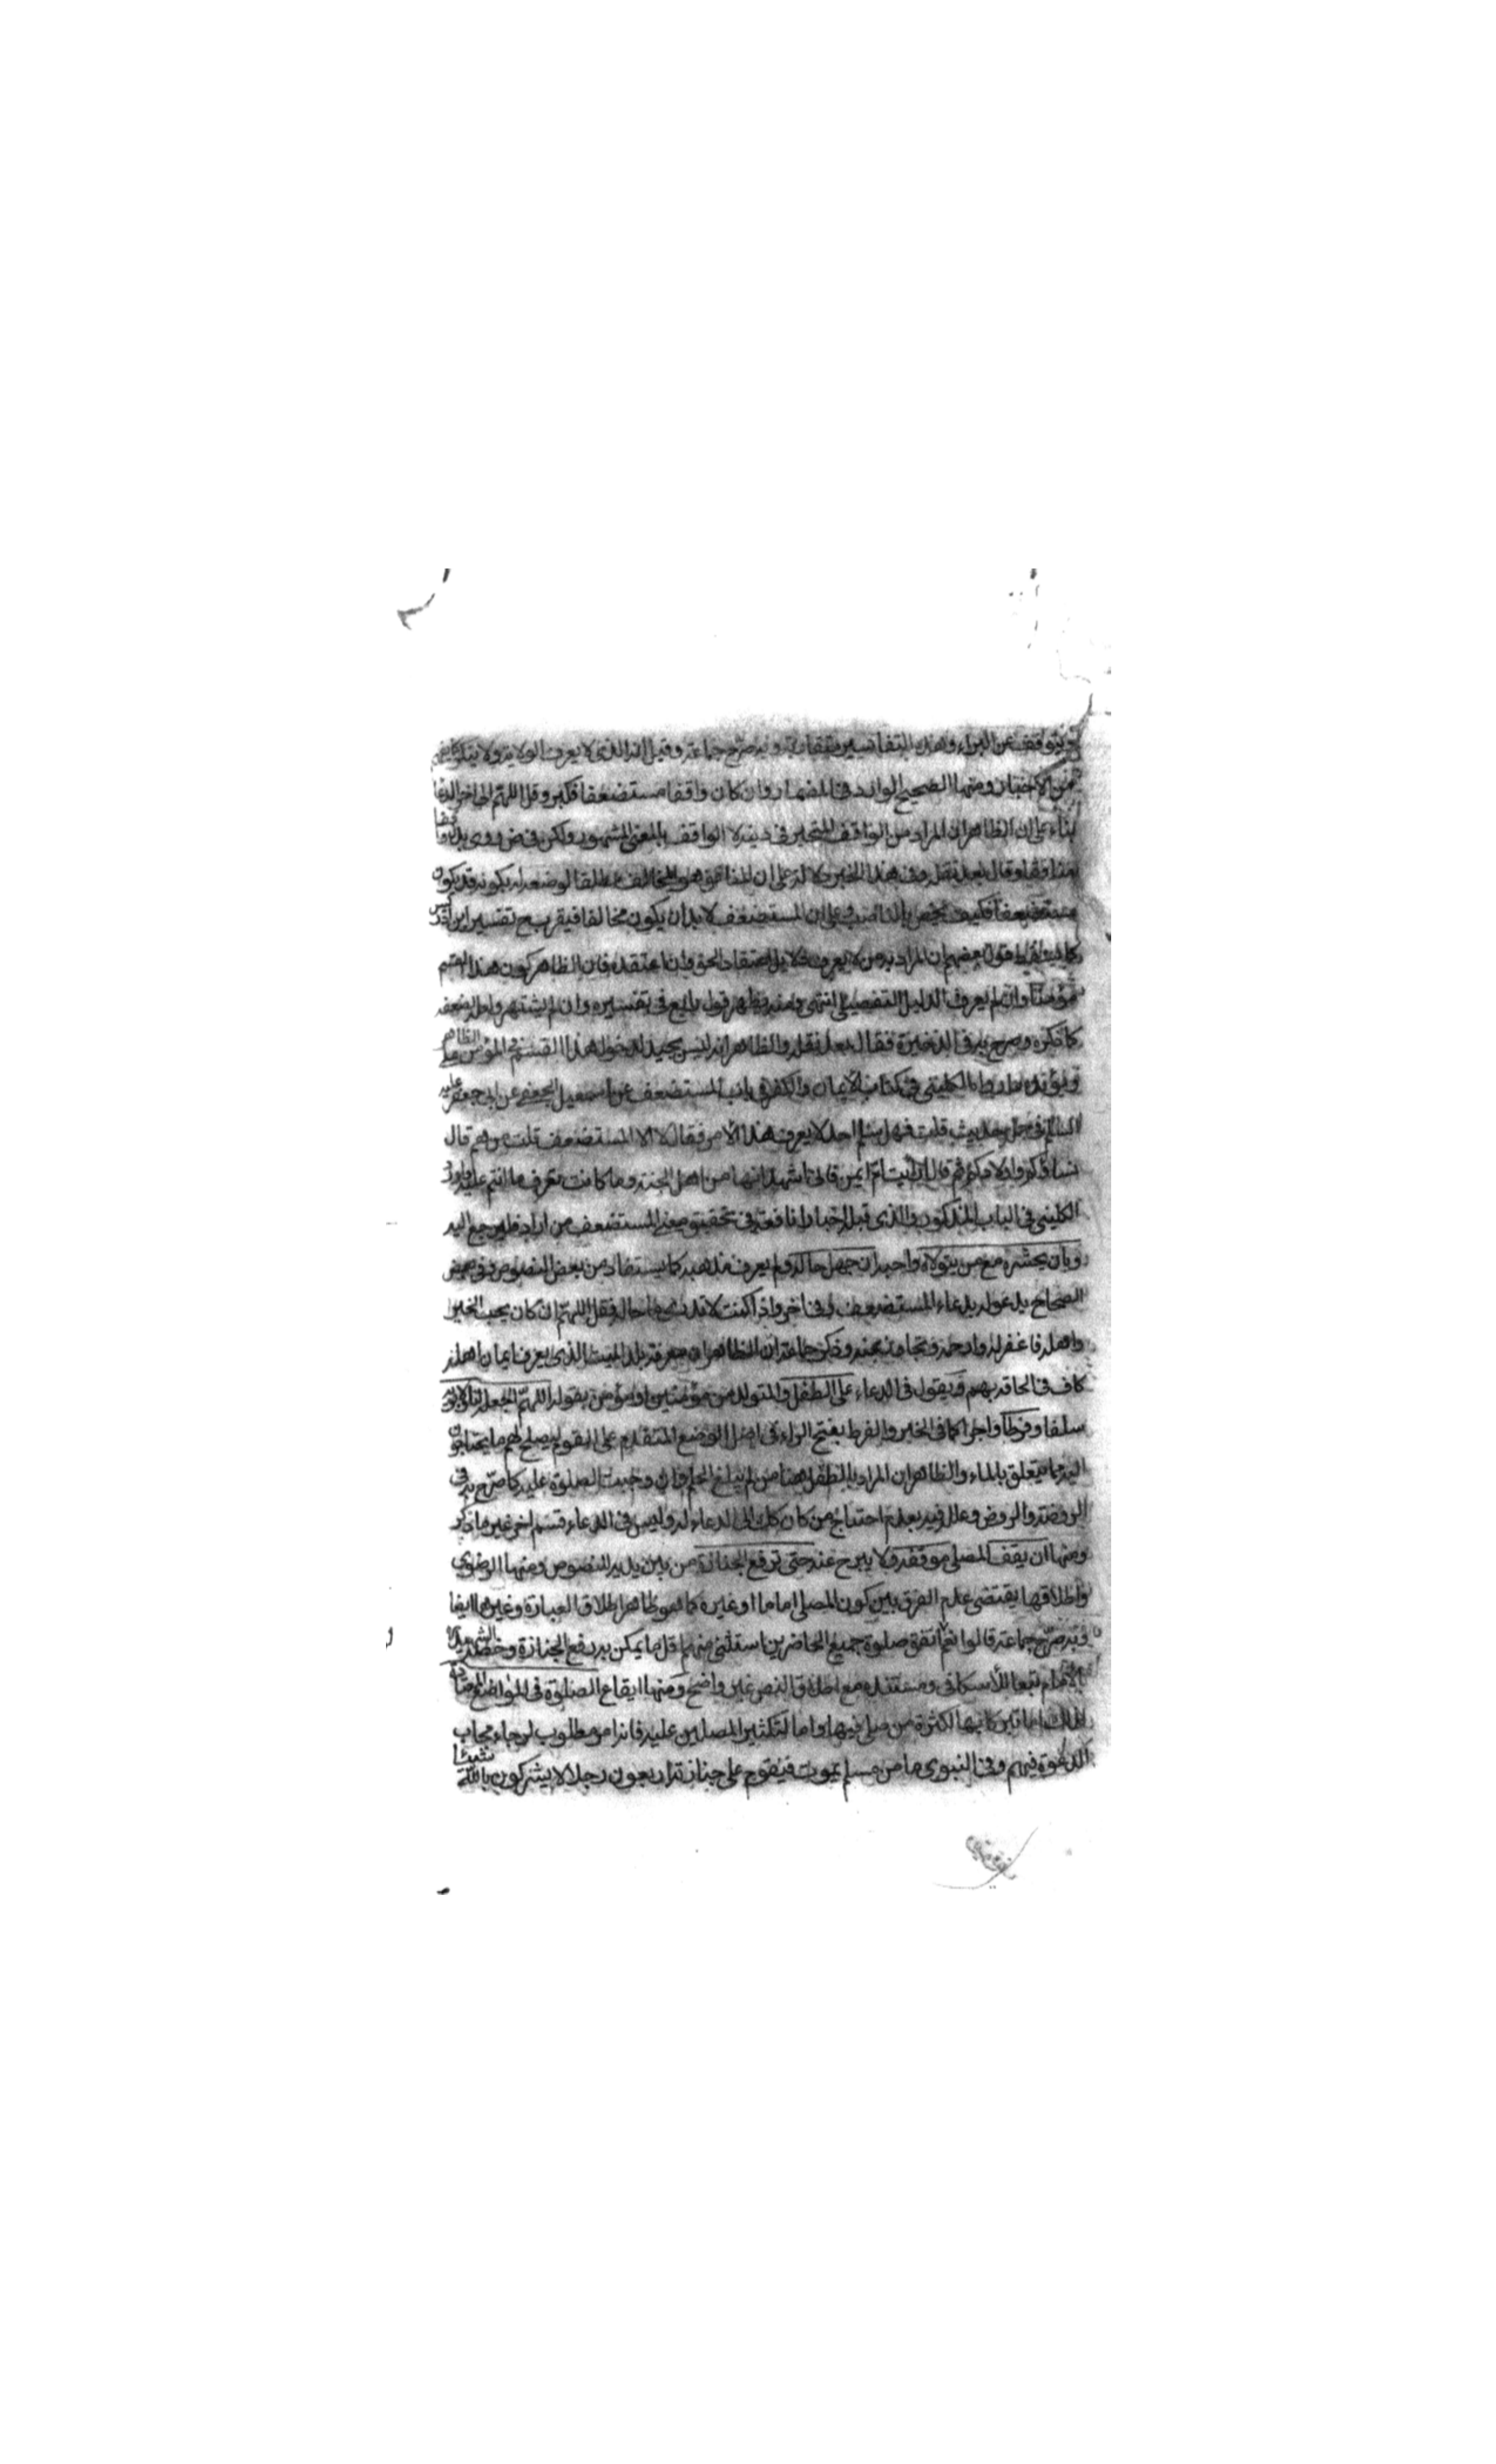 ويتوقف عن البراء وهذه التفاسير متقاربة وبه صرح جماعة وقيل انه الذي لا يعرف الولاية ولا ينكرها
من الاخبار ومنها الصحيح الوارد في المضمار وان كان واقفا مستضعفا فكبر وقل اللهم الى اخر الدعا
بناء على ان الظاهر ان المراد من الواقف المتحير في دينه لا الواقف بالمعنى المشهور ولكن في ض روى بدل واقفا
منافقا وقال بعد نقله وفي هذا الخبر دلالة على ان المنافق هو المخالف مطلقا لوضعه له بكونه قد يكون
مستضعفا فكيف يخص بالناصب وعلى ان المستضعف لا بد ان يكون مخالفا فيقرب مع تفسير ابن ادريس
كما قول بعضهم ان المراد به من لا يعرف دلايل اعتقاد الحق وان اعتقده فان الظاهر كون هذا القسم
مؤمنا وان لم يعرف الدليل التفصيلي انتهى ومنه يظهر قول رابع في تفسيره وان لم يشتهر ولعله لضعفه
كما ذكره وصرح به في الذخيرة فقال بعد نقله والظاهر انه ليس بجيد لدخول هذا القسم في المؤمن الظاهر
ويؤيده ما رواه الكليني في كتاب الايمان والكفر في باب المستضعف عن اسمعيل الجعفي عن ابي جعفر عليه
السلم في جملة حديث قلت فهل سلم احد لا يعرف هذا الامر فقال لا الا المستضعف قلت من هم قال
نساؤكم واولادكم ثم قال ارايت ام ايمن فاني اشهد انها من اهل الجنة وما كانت تعرف ما انتم عليه واورد
الكليني في الباب المذكور والذي قبله اخبارا نافعة في تحقيق معنى المستضعف من اراد فليرجع اليه
وبان يحشره مع من يتولاه واحبه ان جهل حاله ولم يعرف مذهبه كما يستفاد من بعض النصوص وفي بعض
الصحاح يدعو له بدعاء المستضعف وفي اخر واذا كنت لا تدري ما حاله فقل اللهم ان كان يحب الخير
واهله فاغفر له وارحمه وتجاوز عنه وذكر جماعة ان الظاهر ان معرفة بلد الميت الذي يعرف ايمان اهله
كاف في الحاقه بهم ويقول في الدعاء على الطفل والمتولد من مؤمنين او مؤمن بقوله اللهم اجعله لنا ولابويه
سلفا وفرطا واجرا كما في الخبر والفرط بفتح الراء في اصل الوضع المتقدم على القوم ليصلح لهم ما يحتاجون
اليه مما يتعلق بالماء والظاهر ان المراد بالطفل هنا من لم يبلغ الحلم وان وجبت الصلوة عليه كما صرح به في
الروضة والروض وعلل فيه بعدم احتياج من كان كك الى الدعاء له وليس في الدعاء قسم اخر غير ما ذكر
ومنها ان يقف المصلي موقفه ولا يبرح عنه حتى ترفع الجنازة من بين يديه للنصوص ومنها الرضوي
واطلاقها يقتضي عدم الفرق بين كون المصلي اماما او غيره كما هو ظاهر اطلاق العبارة وغيرها ايضا
وبه صرح جماعة قالوا نعم لو اتفق صلوة جميع الحاضرين استثنى منهم اقل ما يمكن به رفع الجنازة وخصه الشهيد
بالامام تبعا للاسكافي ومستنده مع اطلاق النص غير واضح ومنها ايقاع الصلوة في المواضع المعتادة
لذلك اما تبركا بها لكثرة من صلى فيها واما لتكثير المصلين عليه فانه امر مطلوب لرجاء مجاب
الدعوة فيهم وفي النبوي ما من مسلم يموت فيقوم على جنازته اربعون رجلا لا يشركون بالله شيئا